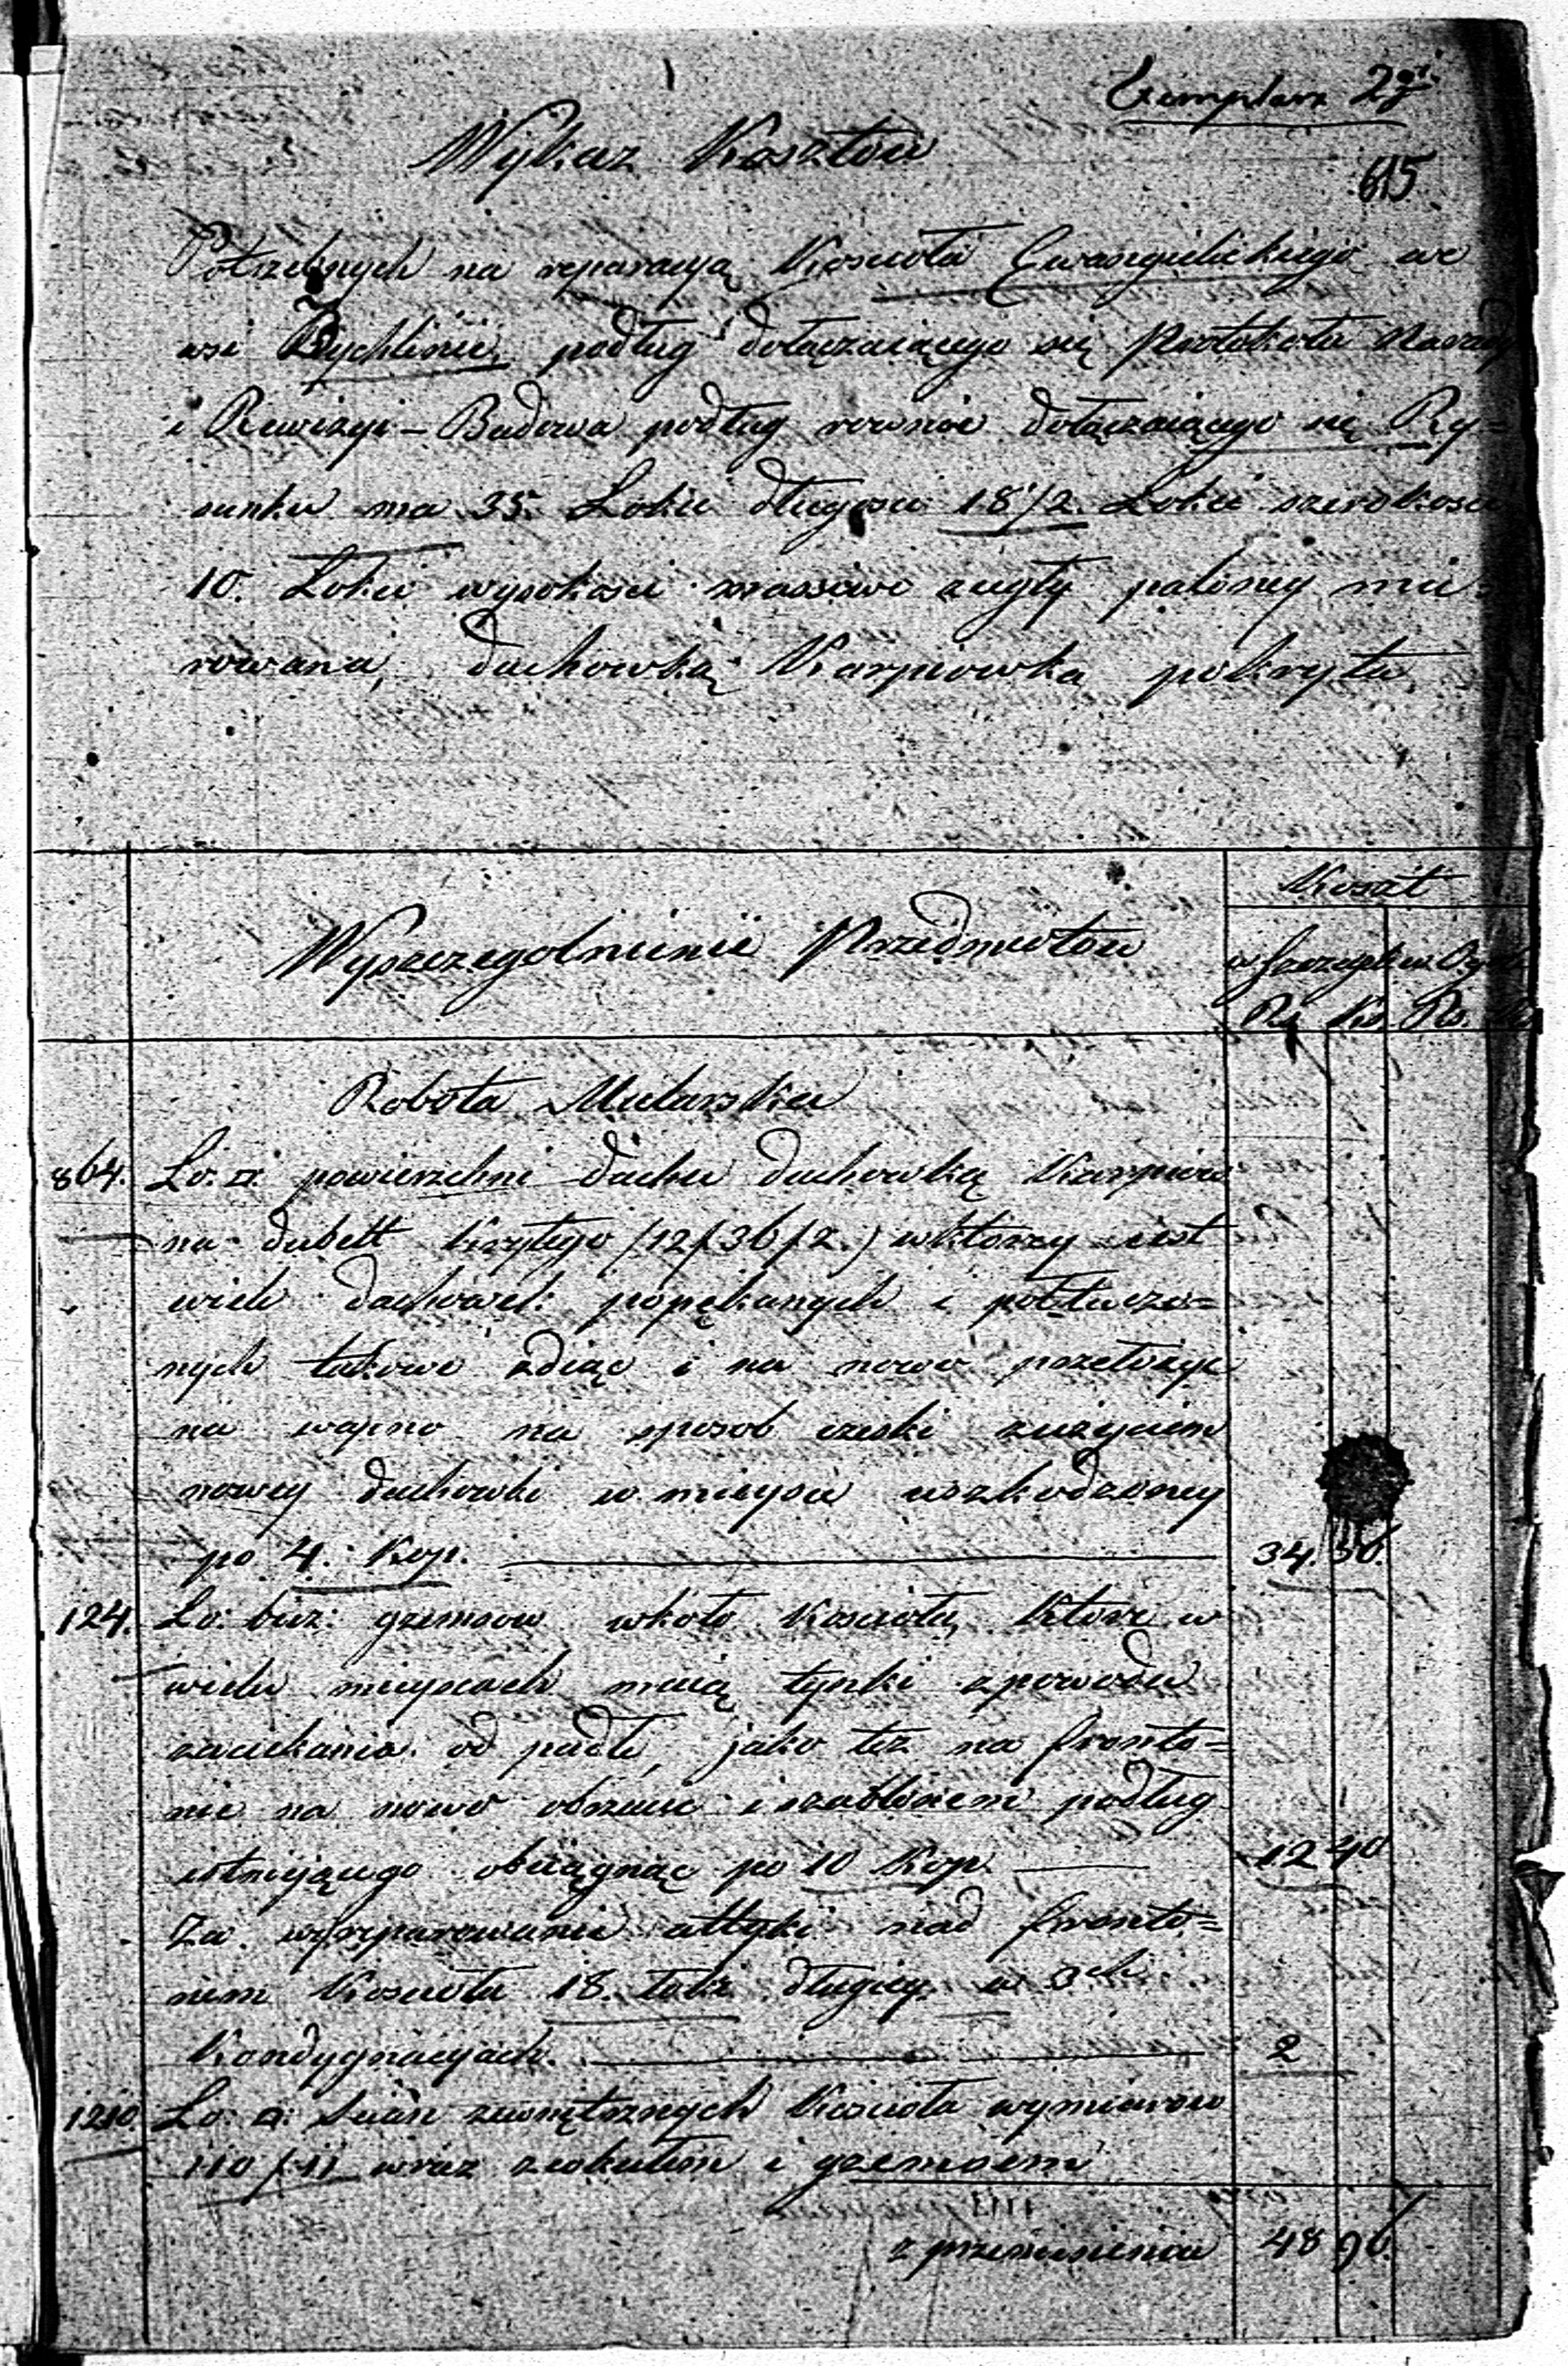 Exemplarz 2gi
Wykaz Kosztow
615
Potrzebnych na reparacyą Koscioła Ewangielickiego we
wsi Żychlinie, podług dołączaiącego się Protokołu Narady
i Rewizyi – Budowa podług rownie dołączaiącego się Ry=
sunku ma 35. Łokci długosci 18 1/2 Łokci szerokosci
10. Łokci wysokosci massiwe cegły paloney mu=
rowana, dachowką Karpiowką pokryta.
Koszt
Wyszczegolnienie Przedmiotow
w Szczegole w Ogole
Rs. Ko. Rs. Ko.
Robota Mularska
864. Ło: □: powierzchni dachu dachowką Karpiow
na dubelt krytego /12/36/2.) w ktorey iest
wiele dachowek popękanych i potłuczo=
nych takowe zdiąć i na nowo przełozyc
na wapno na sposob czeski z uzyciem
nowey dachowki w mieysce uszkodzoney
po 4. Kop. 34. 56.
124. Ło: bież: gzemsow wkoło Kosciołą, ktore w
wielu mieyscach maią tynki z powodu
zaciekania od padłe, jako tez na fronto=
nie na nowo obrzucic i szablonem podług
istniejącego obciągnąc po 10 Kop. 12 40
Za wyreparowanie attyki nad fronto=
nem Kosciola 18. łokci długiey w 3ch
Kondygnacyach. 2
1210. Ło: □: scian zewnętrznych Kosciola wymiarow
110/11 wraz z cokulem i gzemsem
z przeniesienia 48 96.